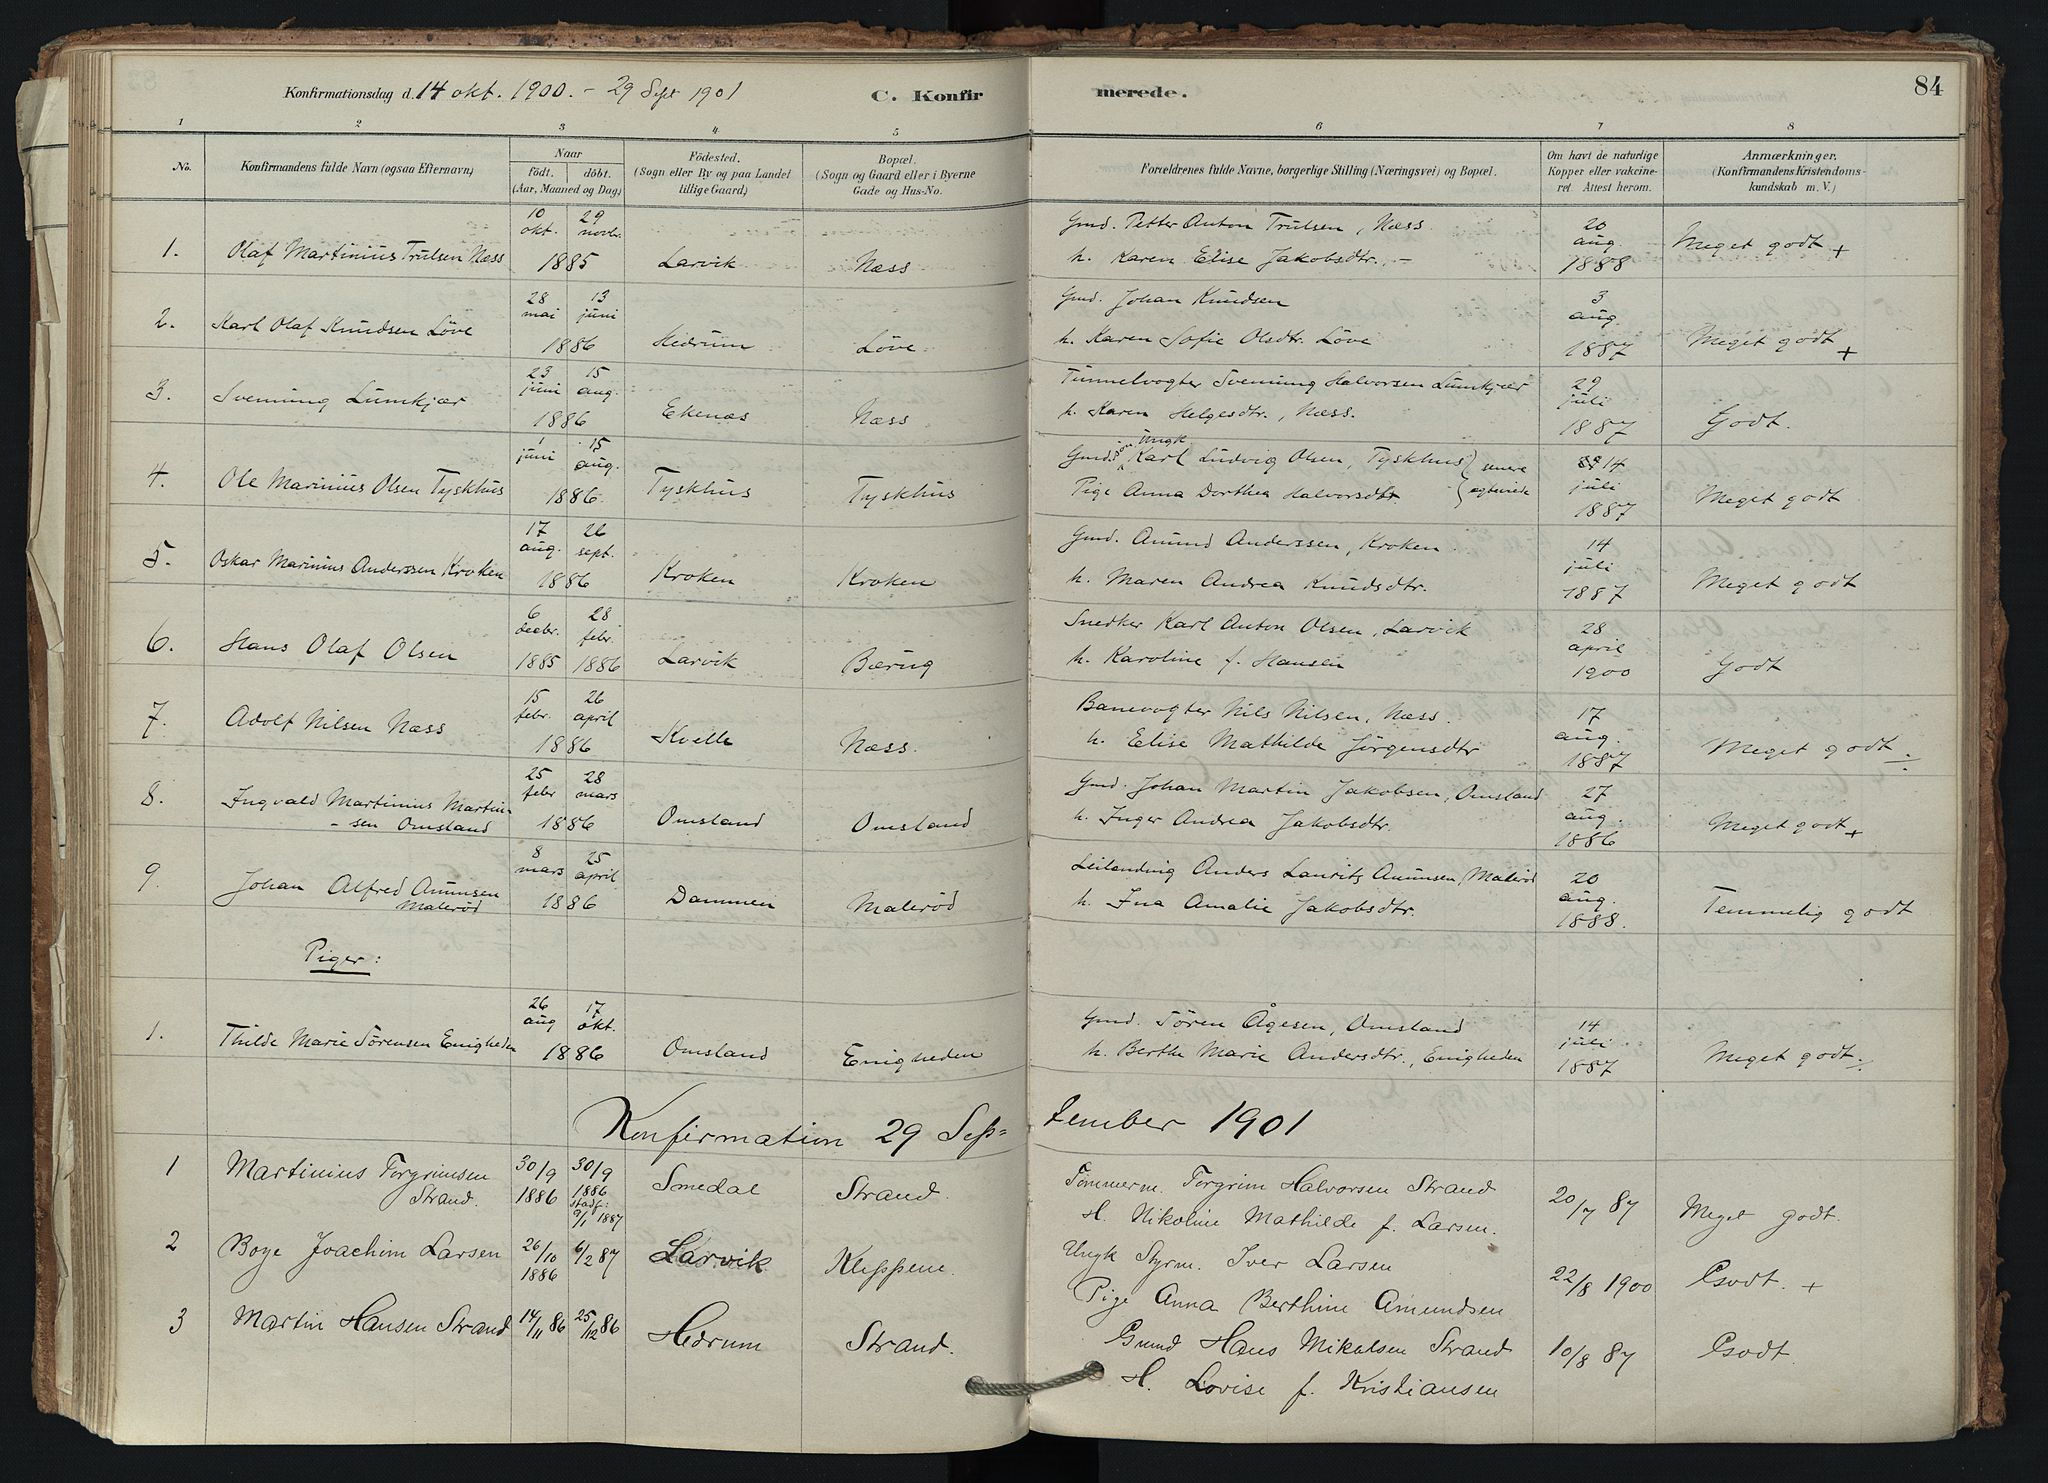 Konfirmationsdag d. 14 okt. 1900. - 29 Sept 1901
C. Konfirmerede.
84
1 2 3 4 5 6 7 8
No.
Konfirmandens fulde Navn (ogsaa Efternavn)
Naar
födt. döbt.
(Aar, Maaned og Dag)
Födested.
(Sogn eller By og paa Landet
tillige Gaard)
Bopæl.
(Sogn og Gaard eller i Byerne
Gade og Hus-No.
Forældrenes fulde Navne, borgerlige Stilling (Næringsvei) og Bopæl.
Om havt de naturlige
Kopper eller vakcine-
ret. Attest herom.
Anmærkninger.
(Konfirmandens Kristendoms-
kundskab m. V.)
1. Olaf Martinius Trulsen Næss 10 okt. 29 novbr. 1885 Larvik Næss
Gmd. Petter Anton Trulsen, Næss
h. Karen Elise Jakobsdtr. -
20 aug. 1888 Meget godt +
2. Karl Olaf Knudsen Löve 28 mai 13 juni 1886 Hedrum Löve
Gmd. Johan Knudsen
h. Karen Sofie Olsdtr. Löve
3 aug. 1887 Meget godt +
3. Svenning Lumkjær 23 juni 15 aug. 1886 Ekenæs Næss
Tunnelvogter Svenning Halvorsen Lumkjær
h. Karen Helgesdtr., Næss.
29 juli 1887 Godt.
4. Ole Marinius Olsen Tyskhus 1 juni 15 aug. 1886 Tyskhus Tyskhus
Gmds. søn Ungk Karl Ludvig Olsen, Tyskhus } senere
Pige Anna Dorthea Halvorsdtr } egteviede
14 juli 1887 Meget godt
5. Oskar Marinius Anderssen Kroken 17 aug. 26 sept. 1886 Kroken Kroken
Gmd. Amund Anderssen, Kroken
h. Maren Andrea Knudsdtr.
14 juli 1887 Meget godt
6. Hans Olaf Olsen 6 decbr. 1885 28 febr. 1886 Larvik Bærug
Snedker Karl Anton Olsen, Larvik
h. Karoline f. Hansen
28 april 1900 Godt
7. Adolf Nilsen Næss 15 febr. 26 april 1886 Kvelle Næss.
Banevogter Nils Nilsen, Næss.
h. Elise Mathilde Jørgensdtr
17 aug. 1887 Meget godt ÷
8. Ingvald Martinius Martin-
sen Omsland 25 febr 28 mars 1886 Omsland Omsland
Gmd. Johan Martin Jakobsen, Omsland
h. Inger Andrea Jakobsdtr.
27 aug. 1886 Meget godt +
9. Johan Alfred Amunsen
Malerød 8 mars 25 april 1886 Dammen Malerød
Leilending Anders Lauritz Amunsen, Malerød
h. Ina Amalie Jakobsdtr.
20 aug. 1888. Temmelig godt
Piger:
1. Thilde Marie Sørensen Enigheden 26 aug 17 okt. 1886 Omsland Enigheden
Gmd. Sören Ågesen, Omsland
h. Berthe Marie Andersdtr., Enigheden
14 juli 1887 Meget godt ÷
Konfirmation 29 September 1901
1 Martinius Torgrimsen
Strand. 30/9 1886 30/9 1886 stadf: 9/1 1887 Smedal Strand.
Tömmerm. Torgrim Halvorsen Strand
H. Nikoline Mathilde f. Larsen.
20/7 87 Meget godt.
2 Boye Joachim Larsen 26/10 1886 6/2 87 Larvik Kleppene.
Ungk Styrm. Iver Larsen
Pige Anna Berthine Amundsen
22/8 1900 Godt. +
3 Martin Hansen Strand 14/11 86 25/12 86 Hedrum Strand.
Grmd Hans Mikalsen Strand
H. Lovise f. Kristiansen
10/8 87 Godt.